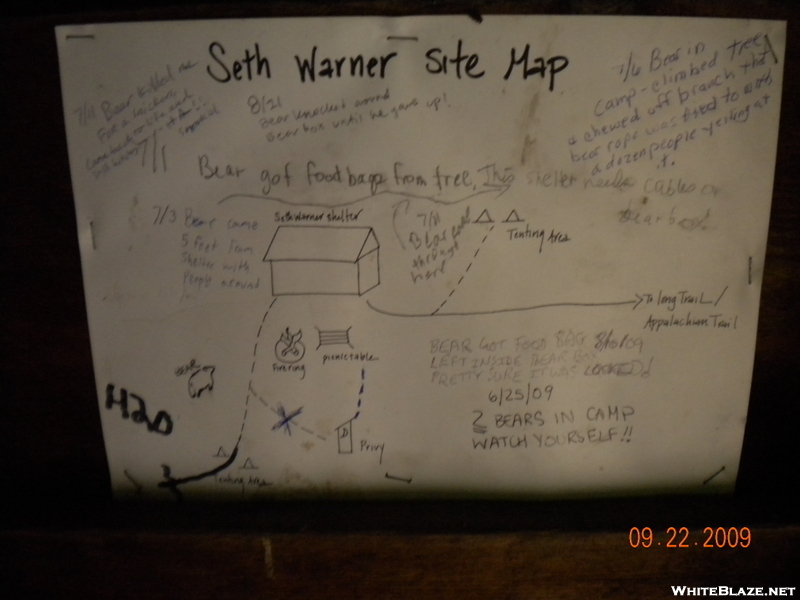 Seth Warner Site Map
7/11 Bear killed me
For a chicken
Came back to life and
still hiking
8/21
Bear knocked around
Bear box until he gave up!
7/6 Bear in
camp - climbed tree
& chewed off branch that
bear rope was tied to with
a dozen people yelling at
it.
7/1
Bear got food bags from tree. This shelter needs cables or
bear box!
7/3 Bear came
5 feet from
Shelter with
People around
Seth Warner shelter
7/11
Bear
through
here
Tenting Area
To Long Trail /
Appalachian Trail
Firering
picnic table
BEAR GOT FOOD BAG 8/8/09
LEFT INSIDE BEAR BOX
PRETTY SURE IT WAS LOCKED!
BEAR
6/25/09
2 BEARS IN CAMP
WATCH YOURSELF!!
H2O
Privy
Tenting Area
09.22.2009
WHITEBLAZE.NET